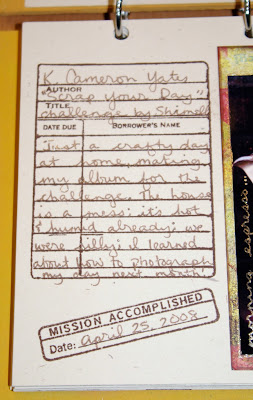 K. Cameron Yates
AUTHOR
"Scrap Your Day"
TITLE
challenge by Shimelle
DATE DUE BORROWER'S NAME
Just a crafty day
at home, making
my album for the
challenge. the house
is a mess: it's hot
& humid already; we
were silly; I learned
about how to photograph
my day next month.
MISSION ACCOMPLISHED
Date: april 25, 2008
morning espresso...